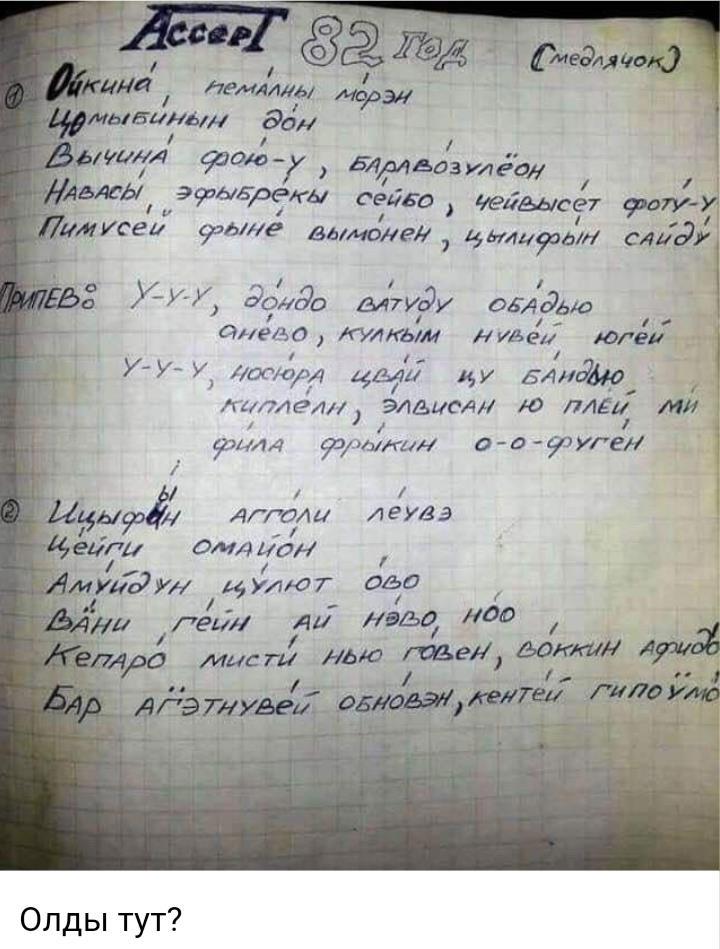 Accept 82 год (медлячок)
① Ойкина́, пема́лны мо́рэн
Цомыби́нын до́н
Вычина́ фою́-у, баравозулёон
Навасы́, эфыбре́кы сейбо, чейвысе́т фоту́-у
Пимусе́й фыне́ вымо́нен, цылифы́н сайду́
Припев: У-у-у, до́ндо ва́туду оба́дью
ане́во, кулкы́м нуве́й юге́й
У-у-у, носю́ра цва́й цу ба́ндью
кипле́лн, э́лвисан ю пле́й ми
фи́ла фры́кин о-о-фуге́н
② И́цыфын агго́ли ле́увэ
Це́йги омайо́н
Аму́йдун цу́лют о́во
Ва́ни ге́йн а́й нэ́во но́о
Кепаро́ мисти́ нью го́вен, во́ккин афидо́
Бар аг'э́тнувей обно́вэн, кенте́й гипоумо́
Олды тут?